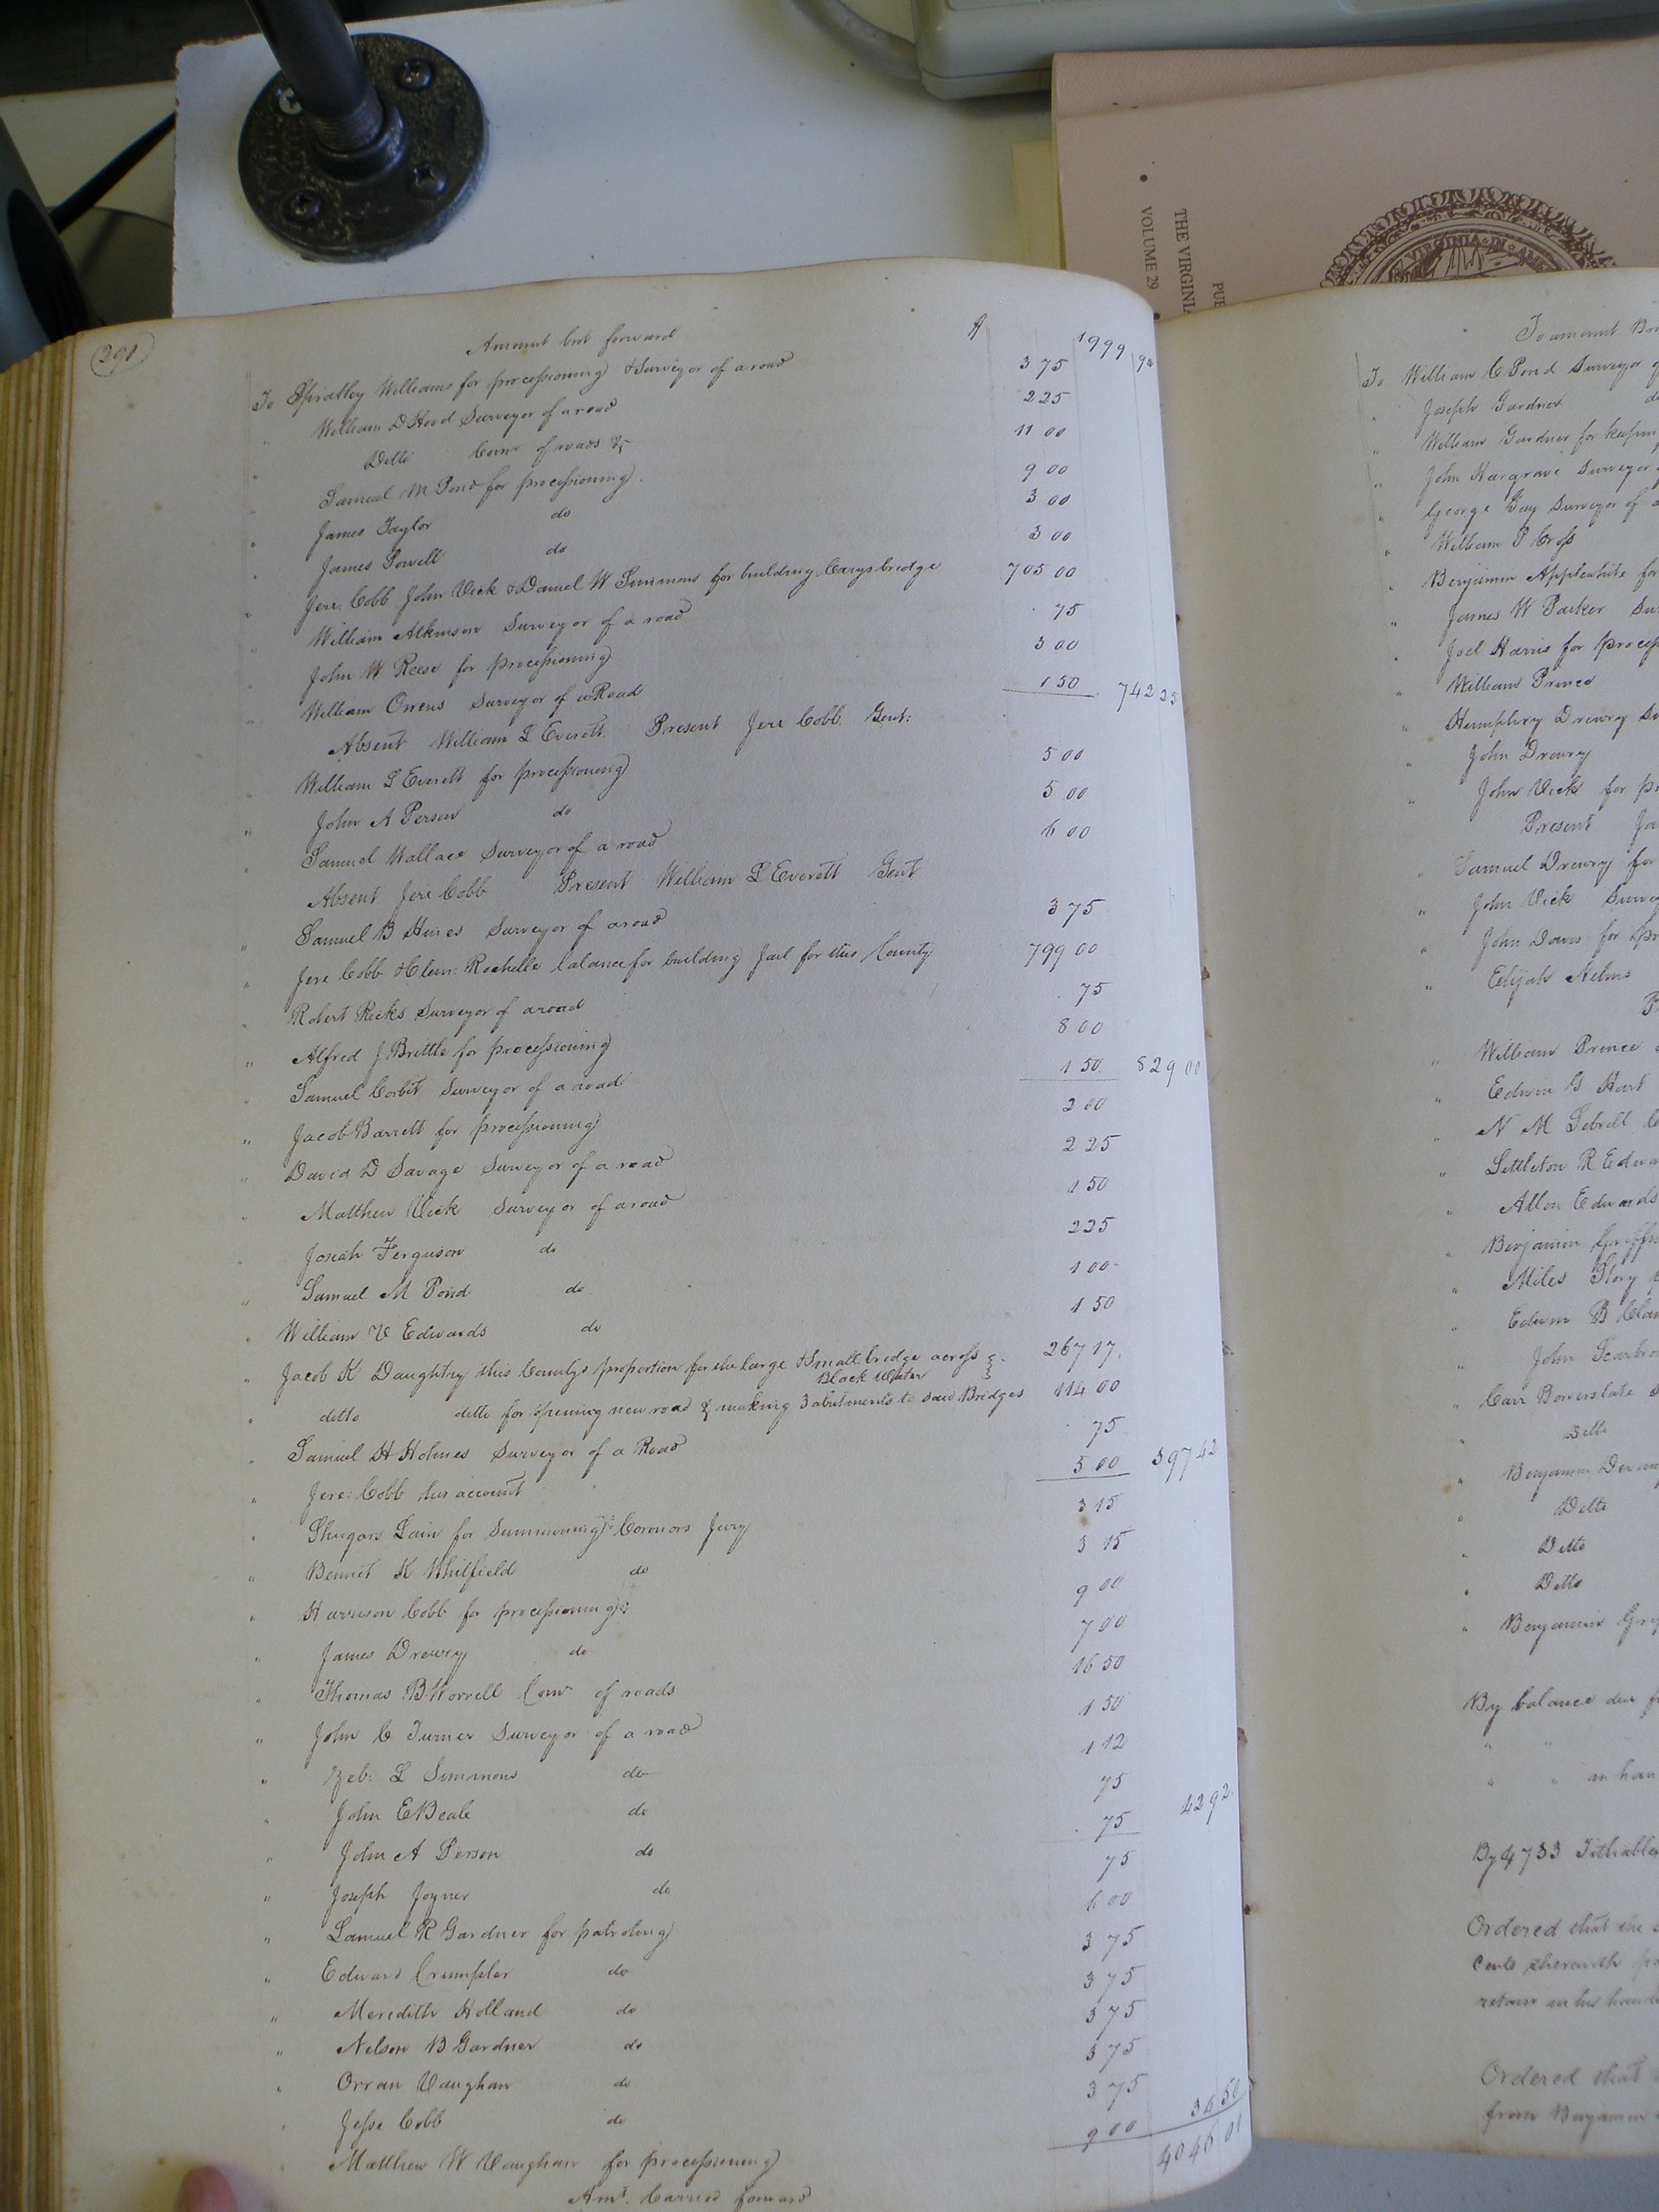 THE VIRGINIA
VOLUME 29
PUB
VIRGINIA IN AMER
291
Amount brot forward $ 1999 92
To Spratley Williams for processioning & Surveyor of a road 3 75
" William D Hood Surveyor of a road 2 25
" Ditto Comr of roads &c 11 00
" Samuel M Pond for processioning 9 00
" James Taylor do 3 00
" James Powell do 3 00
" Jere: Cobb John Vick & Daniel W Simmons for building Carys bridge 705 00
" William Atkinson Surveyor of a road 75
" John W Reese for processioning 3 00
" William Owens Surveyor of a Road 1 50 742 25
Absent William L Everett Present Jere Cobb Gent:
" William L Everett for processioning 5 00
" John A Person do 5 00
" Samuel Wallace Surveyor of a road 6 00
Absent Jere Cobb Present William L Everett Gent
" Samuel B Hines Surveyor of a road 3 75
" Jere Cobb & Clem: Rochelle balance for building Jail for this County 799 00
" Robert Ricks Surveyor of a road 75
" Alfred J Brittle for processioning 8 00
" Samuel Corbit Surveyor of a road 1 50 829 00
" Jacob Barrett for processioning 2 00
" David D Savage Surveyor of a road 2 25
" Matthew Vick Surveyor of a road 1 50
" Josiah Ferguson do 2 25
" Samuel M Pond do 1 00
" William V Edwards do 1 50
" Jacob K Daughtry this Countys proportion for the large & Small bridge across
Black Water 267 17
" ditto ditto for opening new road & making 3 abutments to said Bridges 114 00
" Samuel H Holmes Surveyor of a Road 75
" Jere: Cobb his account 5 00 397 42
" Shugars Lain for Summoning Coronors Jury 3 15
" Bennit K Whitfield do 3 15
" Harrison Cobb for processioning 9 00
" James Drewry do 7 00
" Thomas B Worrell Comr of roads 16 50
" John C Turner Surveyor of a road 1 50
" Zeb: L Simmons do 1 12
" John E Beale do 75
" John A Person do 75 42 92
" Joseph Joyner do 75
" Lemuel R Gardner for patroling 6 00
" Edward Crumpler do 3 75
" Meredith Holland do 3 75
" Nelson B Gardner do 3 75
" Orran Vaughan do 3 75
" Jesse Cobb do 3 75
Matthew W Vaughan for processioning 9 00 34 50
Amt. Carried forward 4046 01
To amount Bro
To William C Pond Surveyor of
" Joseph Gardner do
" William Gardner for keeping
" John Hargrave Surveyor
" George Gay Surveyor of a
" William P Cross
" Benjamin Applewhite for
" James W Parker Su
" Joel Harris for process
" William Prince
" Humphrey Drewry Su
" John Drewry
" John Vick for pr
Present Ja
" Samuel Drewry for
" John Vick Surve
" John Davis for pr
" Elijah Helms
P
" William Prince
" Edwin G Hart
" N M Sebrell
" Littleton R Edwa
" Allen Edwards
" Benjamin Griffin
" Miles Story
" Edwin B Cla
" John Scarbro
" Carr Bowers late S
" Ditto
" Benjamin Devan
" Ditto
" Ditto
" Ditto
" Benjamin Gri
By balance due f
" "
" " in han
By 4733 Tithables
Ordered that the s
Cents therewith pa
retain in his hands
Ordered that
from Benjamin